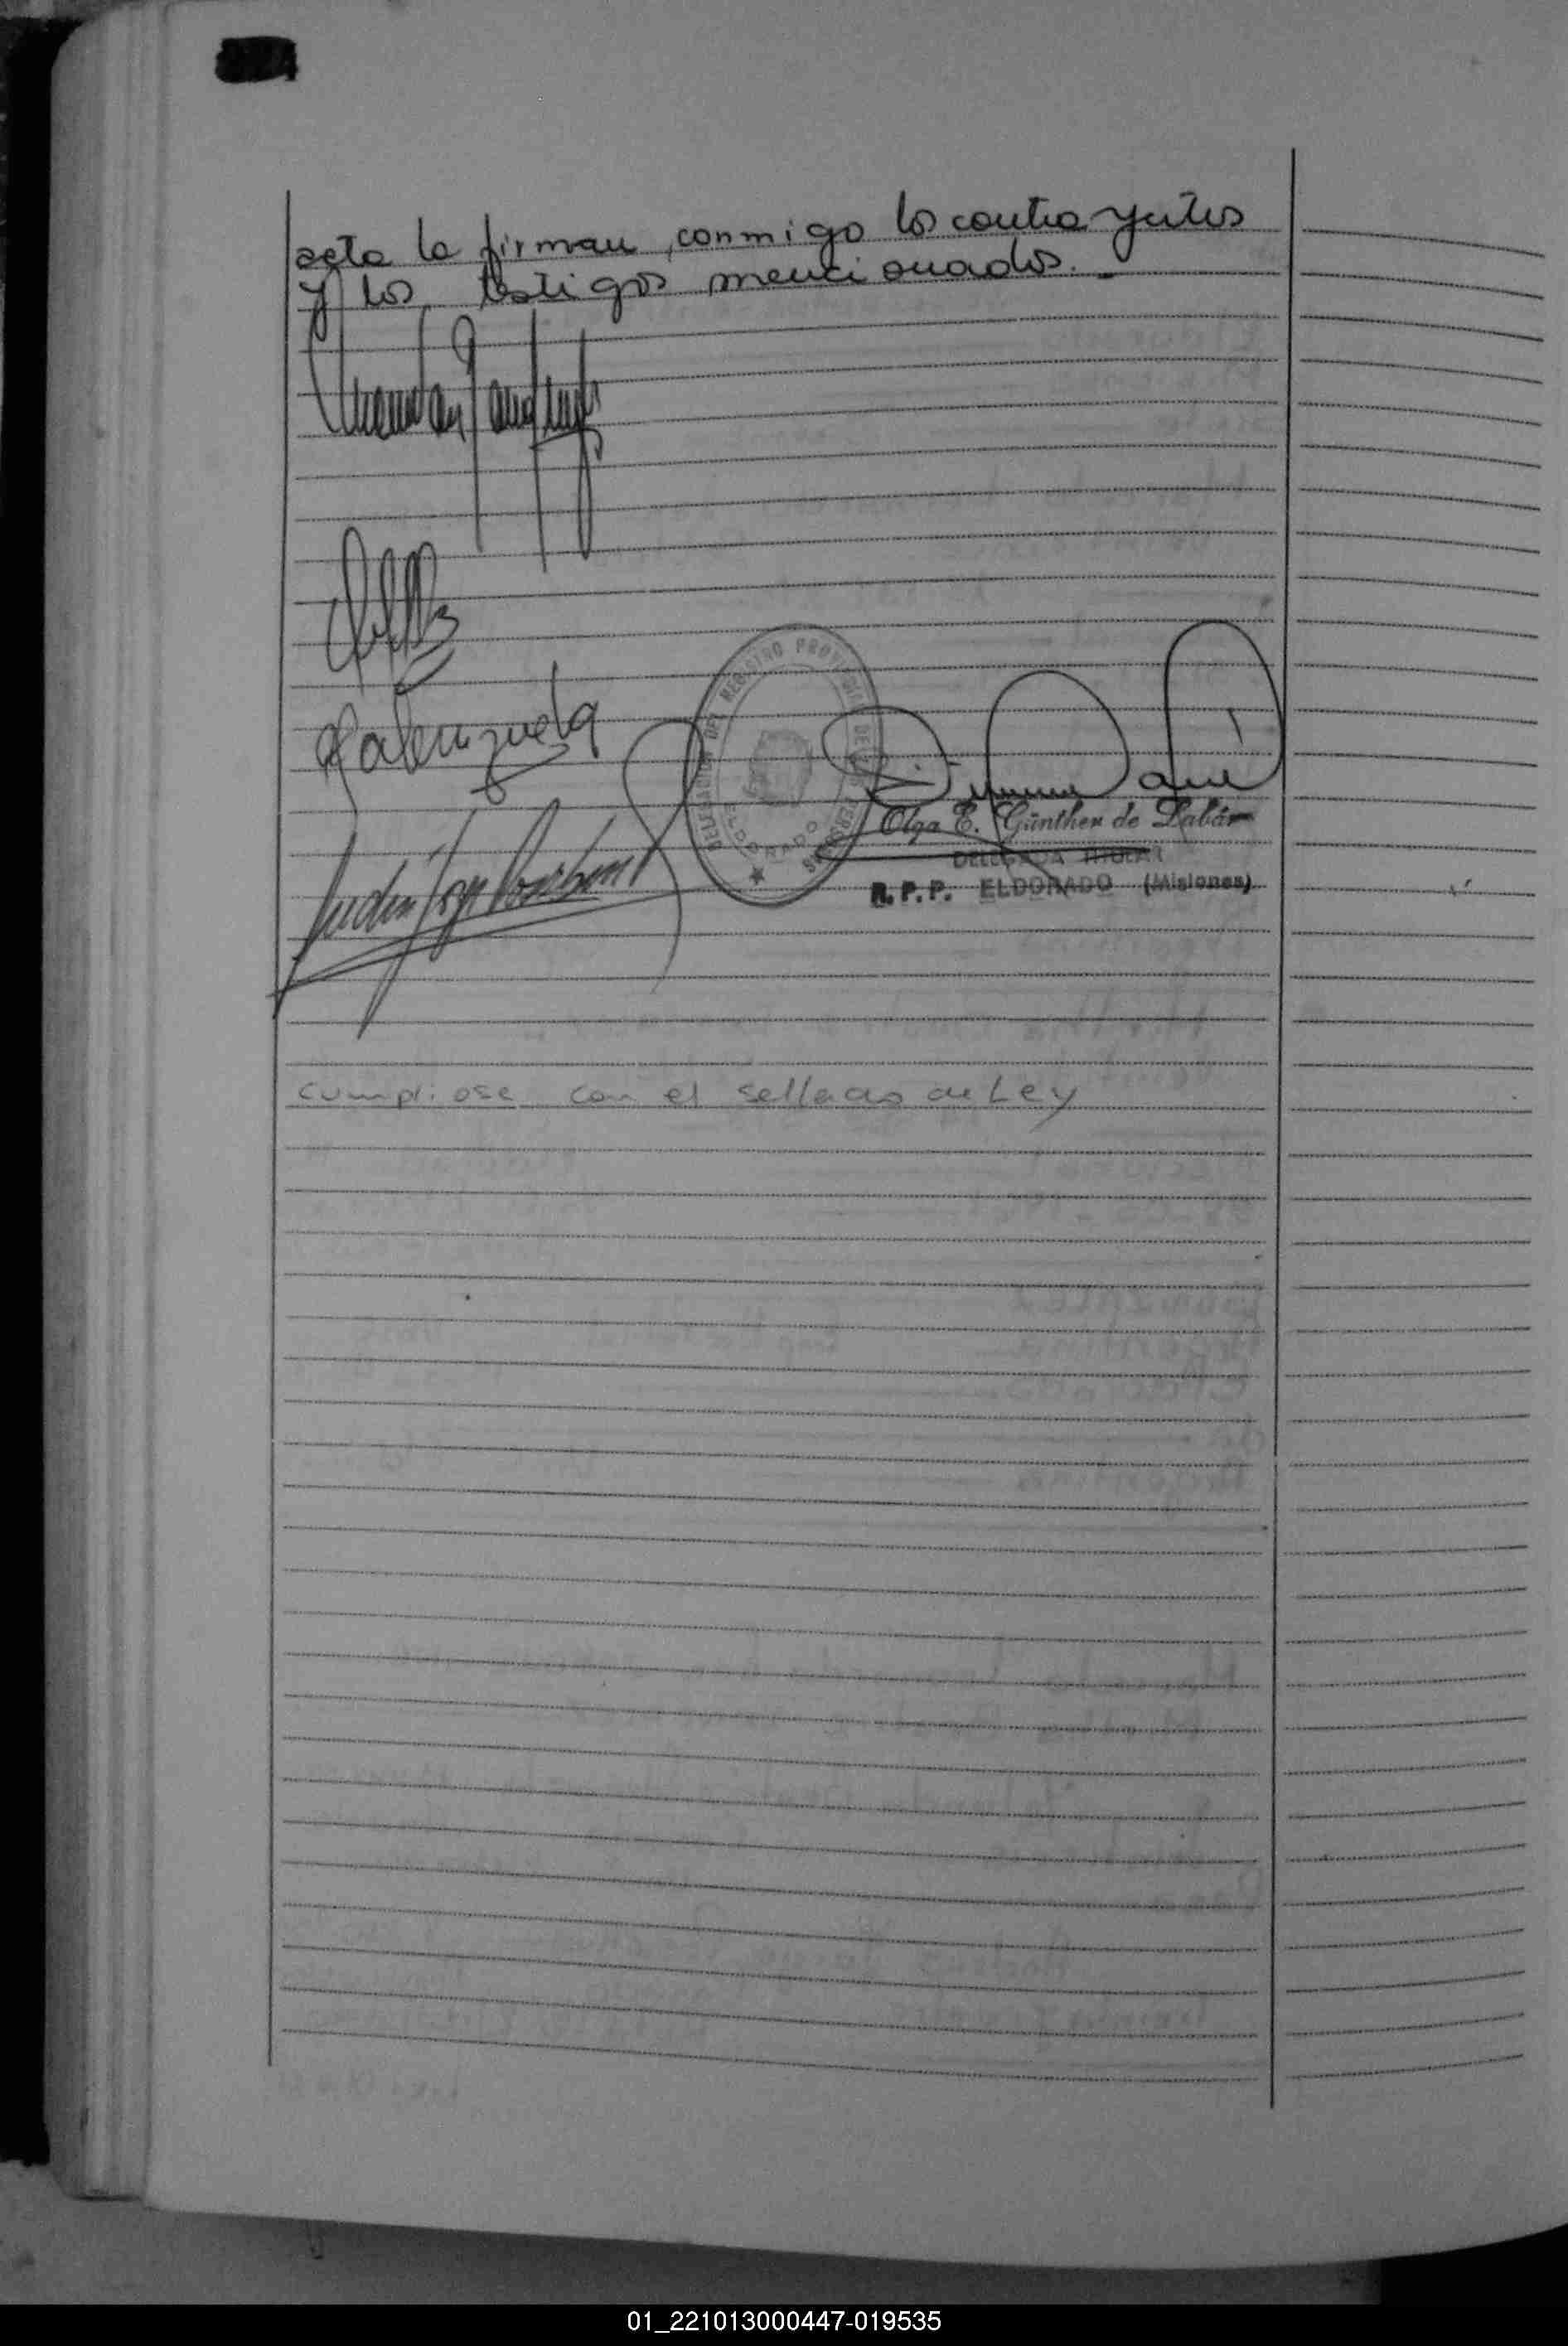 acta la firman, conmigo los contrayentes
y los testigos mencionados.-
Valenzuela
DELEGACION DEL REGISTRO PROVINCIAL DE LAS PERSONAS
ELDORADO
Olga E. Günther de Labár
DELEGADA TITULAR
R. P. P. ELDORADO (Misiones)
Cumpliose con el sellado de Ley
01_221013000447-019535